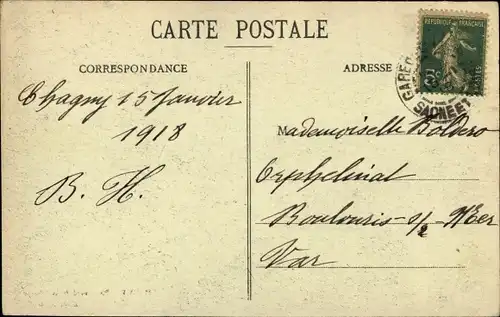 CARTE POSTALE
CORRESPONDANCE
ADRESSE
REPUBLIQUE FRANÇAISE
POSTES
5c
GARE
SAONE ET
Chagny 15 Janvier
1918
B. H.
Mademoiselle Boldero
Orphelinat
Boulouris-s/Mer
Var